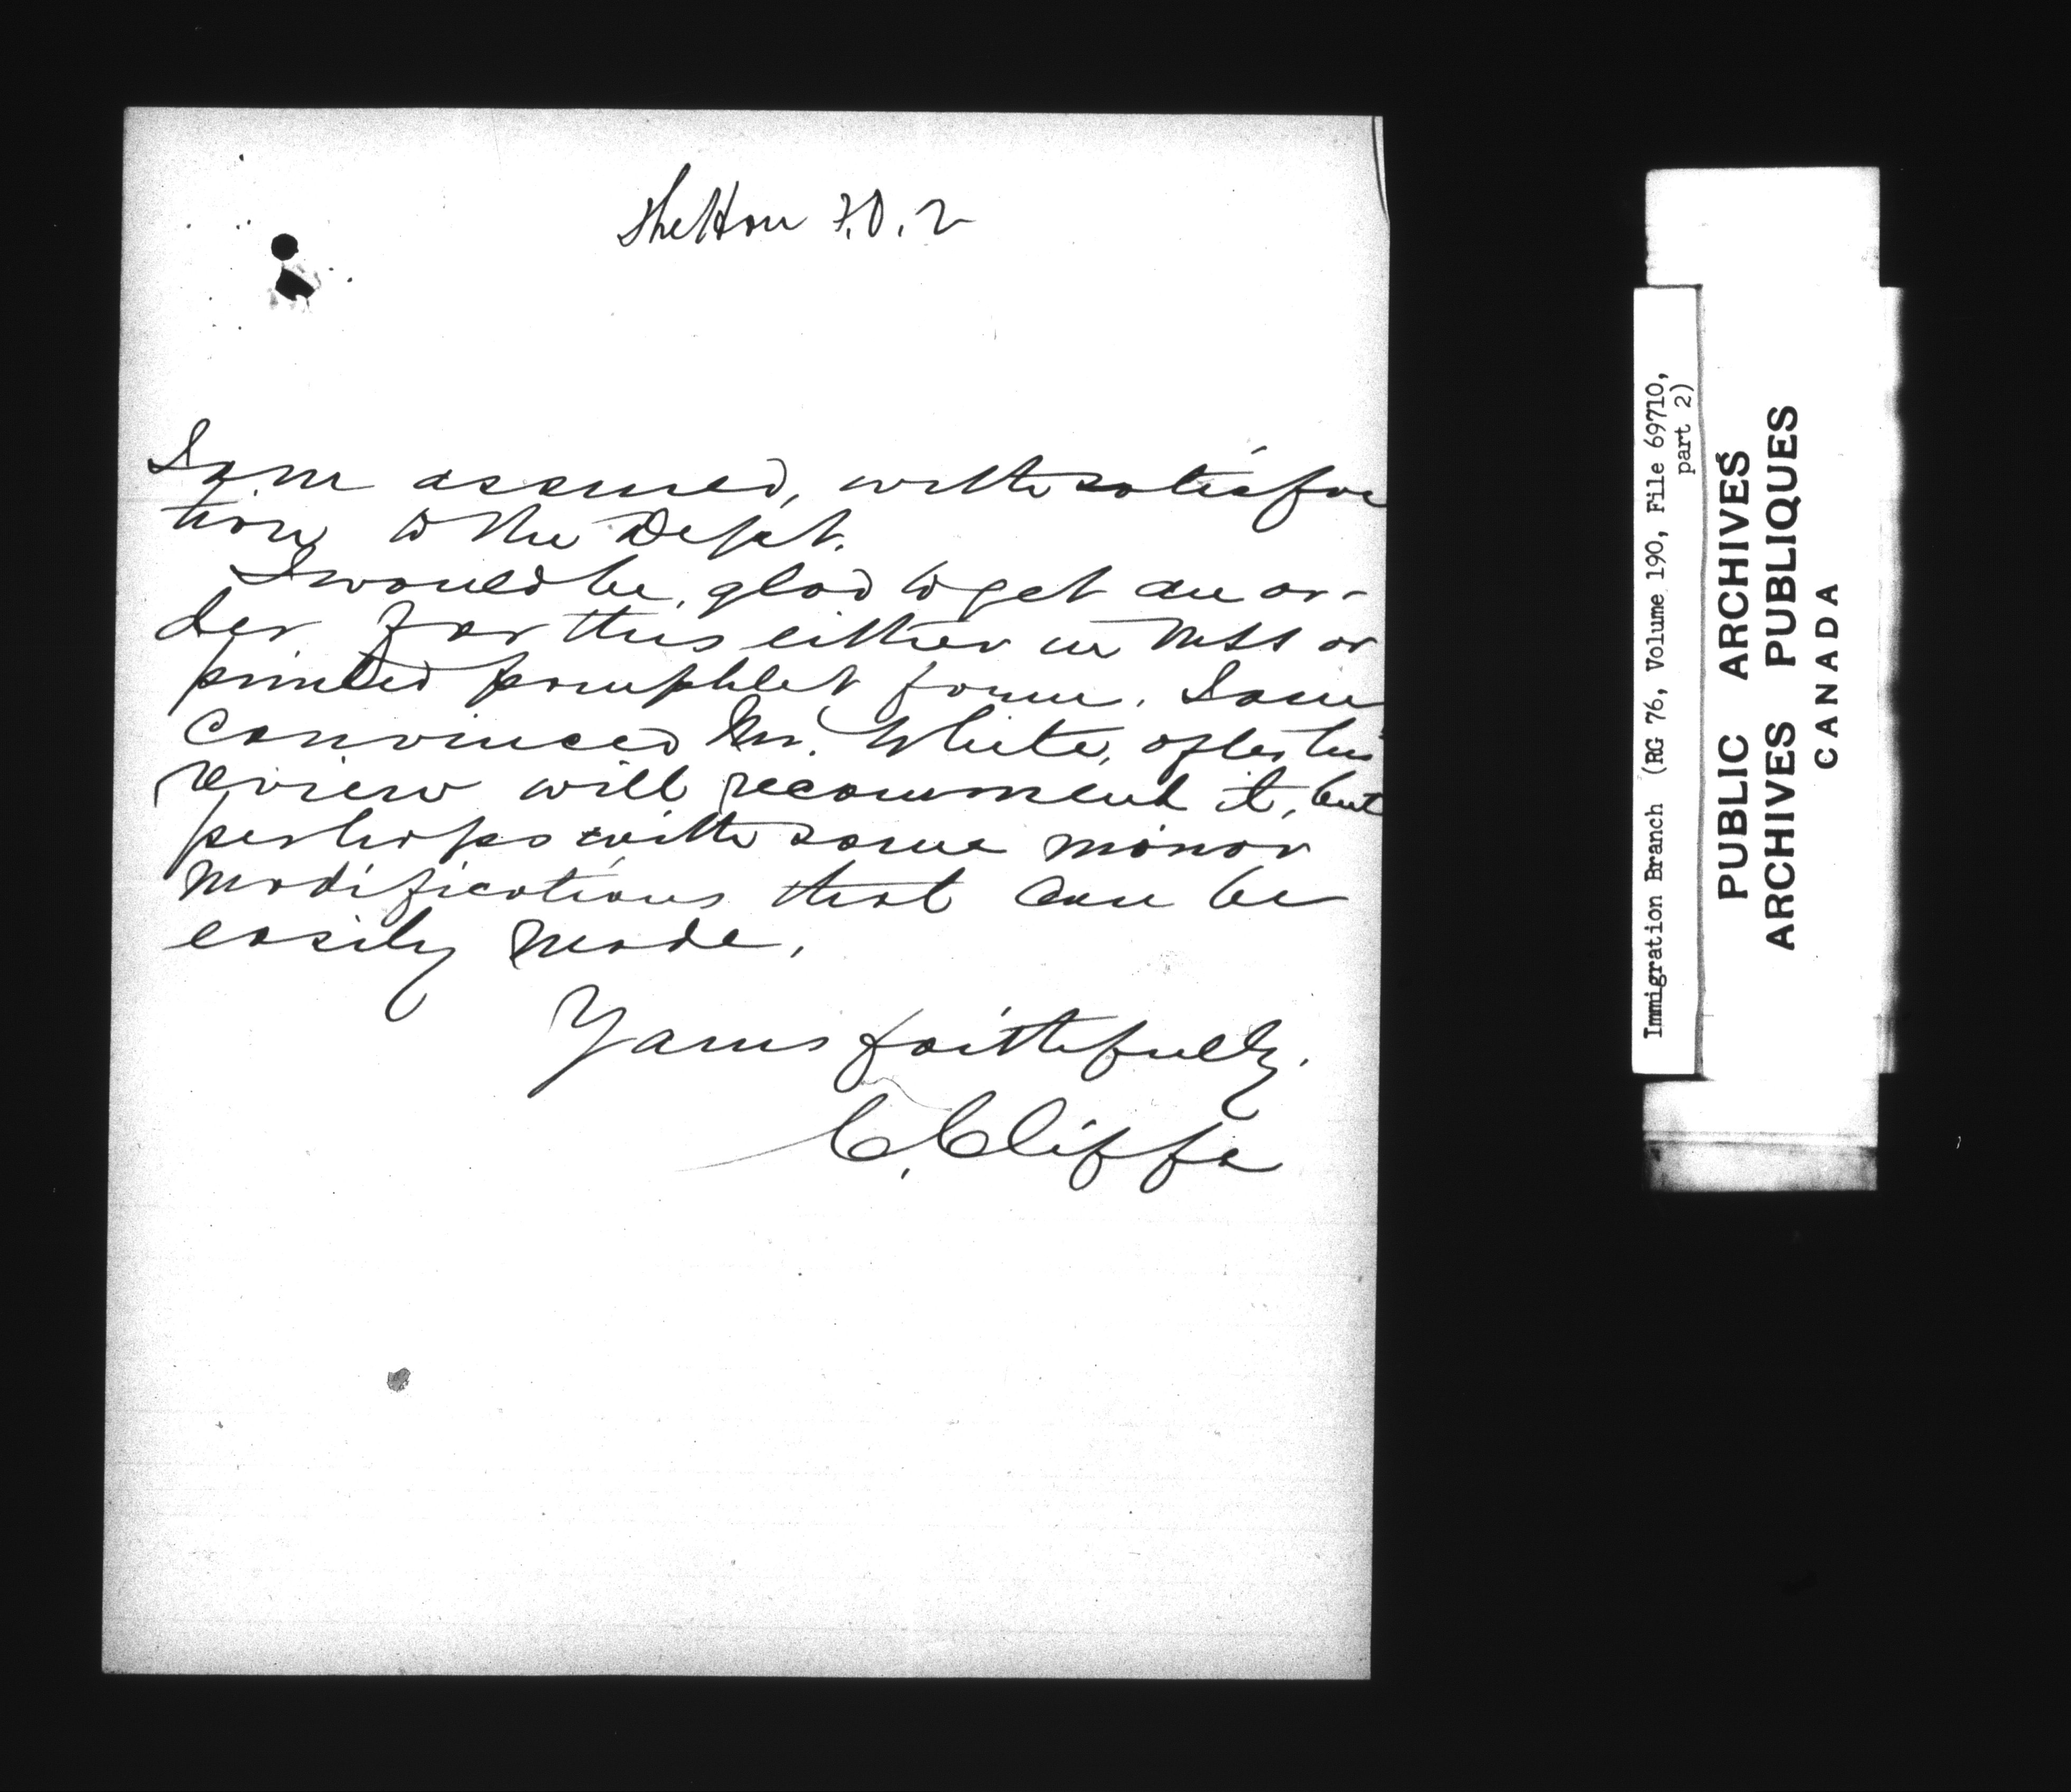 Shelton F.O. 2
I am assured, with satisfac
tion to the Dept.
I would be glad to get an or-
der for this either in MSS or
printed pamphlet form. I am
convinced Mr. White, after his
review will recommend it, but
perhaps with some minor
modifications that can be
easily made.
Yours faithfully.
C. Cliffe
Immigration Branch (RG 76, Volume 190, File 69710,
part 2)
PUBLIC ARCHIVES
ARCHIVES PUBLIQUES
CANADA